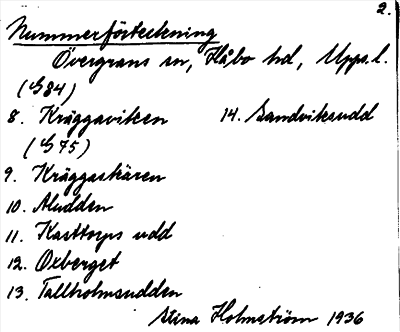 2.
Nummerförteckning
Övergrans sn, Håbo hd, Upps.l.
(G84)
8. Kräggaviken 14. Sandviksudd
(G75)
9. Kräggaskären
10. Aludden
11. Kasttorps udd
12. Oxberget
13. Tallholmsudden
Stina Holmström 1936